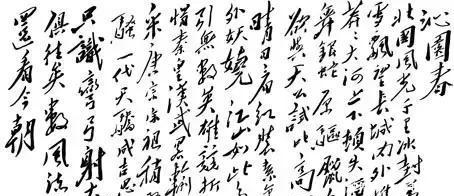 沁園春
北國風光千里冰封
雪飄望長城內外
莽莽大河上下頓失
舞銀蛇原驅臘
欲與天公試比高
晴日看紅裝素
外妖嬈江山如此
引無數英雄競折
惜秦皇漢武略輸
采唐宗宋祖稍
騷一代天驕成吉思
只識彎弓射大
俱往矣數風流
還看今朝